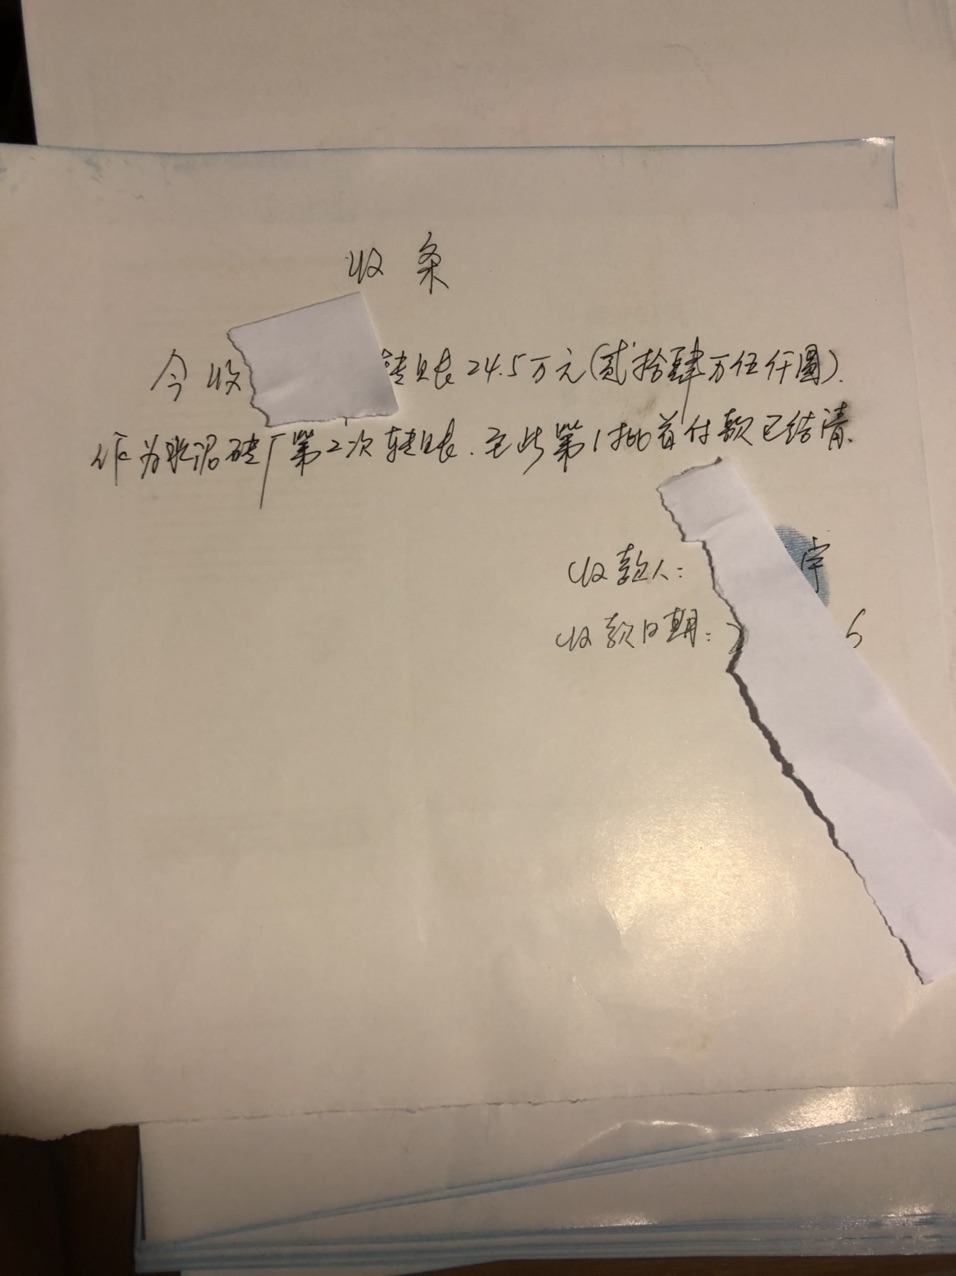 收条
今收转账24.5万元(贰拾肆万伍仟圆).
作为水泥砖厂第2次转账.至此第1批首付款已结清.
收款人:
收款日期: